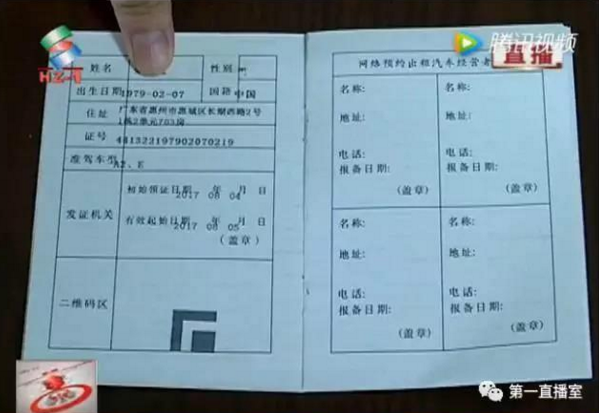 HZTV
腾讯视频
直播
姓名
性别
出生日期 1979-02-07 国籍 中国
住址 广东省惠州市惠城区长湖西路2号
证号
准驾车型 A2、E
初始领证日期 年 月 日
2017 08 04
发证机关
有效起始日期 年 月 日
2017 08 05
(盖章)
二维码区
网络预约出租汽车经营者
名称:
地址:
电话:
报备日期:
(盖章)
名称:
地址:
电话:
报备日期:
(盖章)
名称:
地址:
电话:
报备日期:
(盖章)
名称:
地址:
电话:
报备日期:
(盖章)
第一直播室